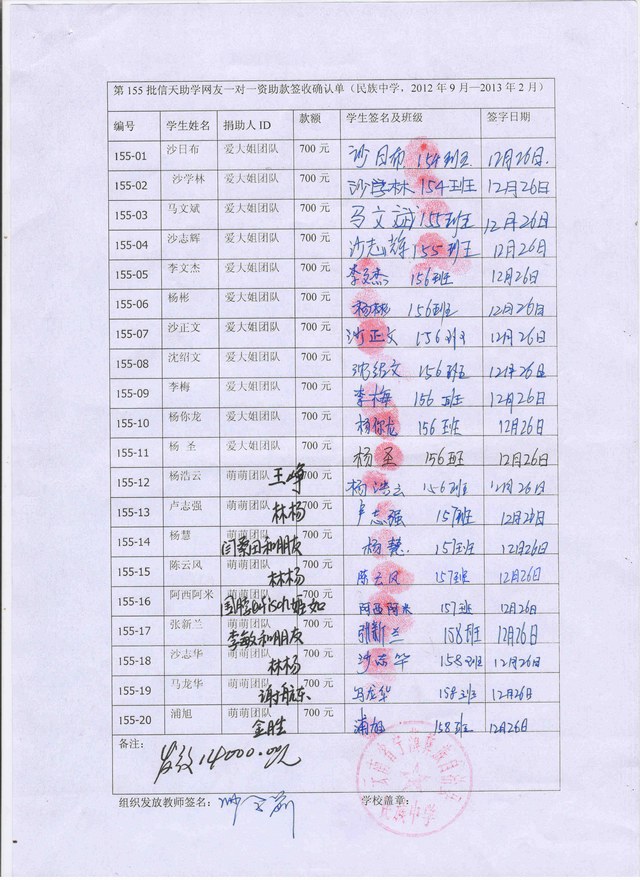 第 155 批信天助学网友一对一资助款签收确认单（民族中学，2012 年 9 月—2013 年 2 月）
编号 学生姓名 捐助人 ID 款额 学生签名及班级 签字日期
155-01 沙日布 爱大姐团队 700 元 沙日布 154班 12月26日.
155-02 沙学林 爱大姐团队 700 元 沙学林 154班 12月26日
155-03 马文斌 爱大姐团队 700 元 马文斌 155班 12月26日
155-04 沙志辉 爱大姐团队 700 元 沙志辉 155班 12月26日
155-05 李文杰 爱大姐团队 700 元 李文杰 156班 12月26日
155-06 杨彬 爱大姐团队 700 元 杨彬 156班 12月26日
155-07 沙正文 爱大姐团队 700 元 沙正文 156班 12月26日
155-08 沈绍文 爱大姐团队 700 元 沈绍文 156班 12月26日
155-09 李梅 爱大姐团队 700 元 李梅 156班 12月26日
155-10 杨你龙 爱大姐团队 700 元 杨你龙 156班 12月26日
155-11 杨 圣 爱大姐团队 700 元 杨圣 156班 12月26日
155-12 杨浩云 萌萌团队 王峥 700 元 杨浩云 156班 12月26日
155-13 卢志强 萌萌团队 林杨 700 元 卢志强 157班 12月26日
155-14 杨慧 萌萌团队 和朋友 700 元 杨慧 157班 12月26日
155-15 陈云风 萌萌团队 林杨 700 元 陈云风 157班 12月26日
155-16 阿西阿米 萌萌团队 700 元 阿西阿米 157班 12月26日
155-17 张新兰 萌萌团队 李敏和朋友 700 元 张新兰 158班 12月26日
155-18 沙志华 萌萌团队 林杨 700 元 沙志华 158班 12月26日
155-19 马龙华 萌萌团队 谢航东 700 元 马龙华 158班 12月26日
155-20 浦旭 萌萌团队 金胜 700 元 浦旭 158班 12月26日
备注：
发放14000.00元
组织发放教师签名： 学校盖章：
民族中学